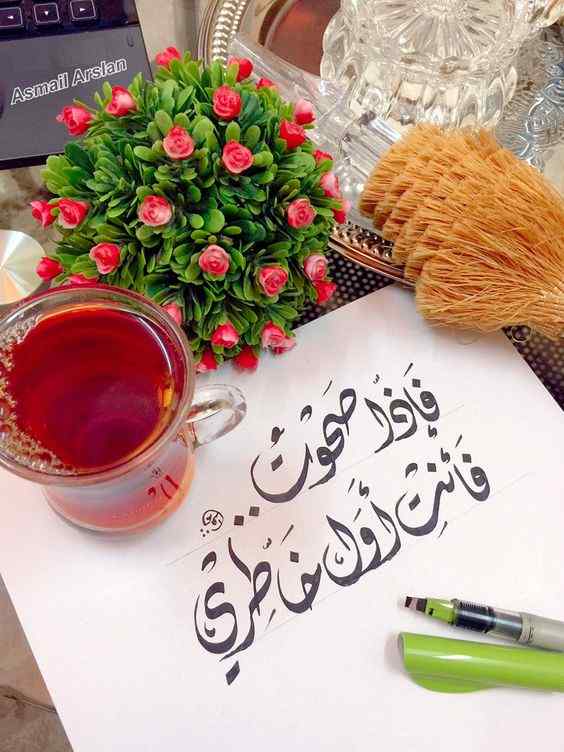 Asmail Arslan
فَإِذَا صَحَوْتُ
فَأَنْتِ أَوَّلُ خَاطِرِي